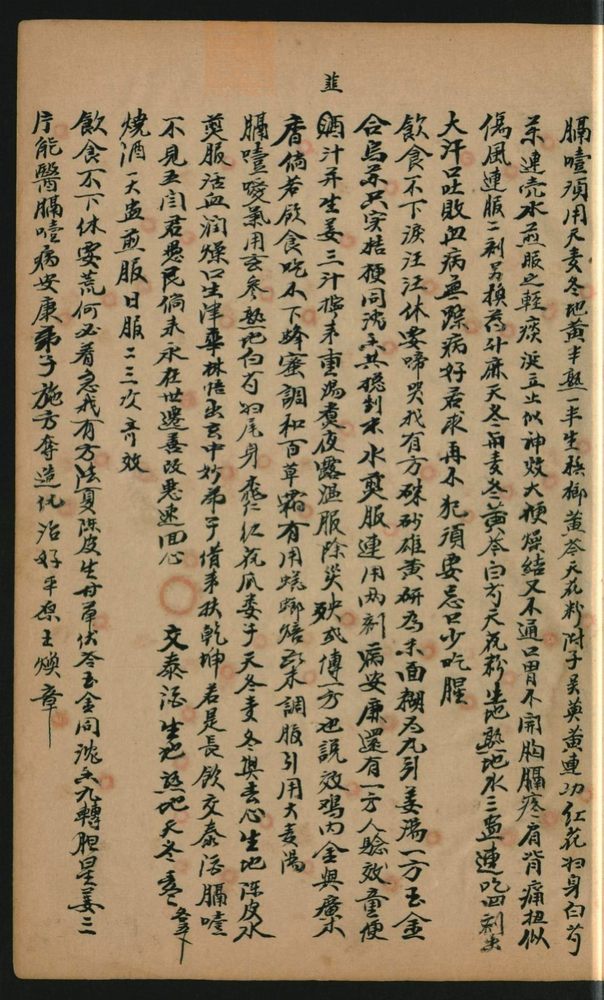 韮
膈噎須用天麦冬地黄半熟一半生梹榔黄芩天花粉附子吴英黄連功紅花归身白芍
茶連壳水煎服之軽痰涎立止似神效大梗燥結又不通口胃不開胸膈疼肩背痛扭似
傷風連服二剂另换药升麻天冬面麦冬黄芩白芍天花粉生地熟地水三盅連吃四剂出
大汗口吐敗血病無踪病好君求再不犯須要忌口少吃腥
飲食不下淚汪汪休要啼哭我有方硃砂雄黄研為末面糊為丸引姜湯一方玉金
合烏茶共实桔梗同沉香共總到末水煎服連用两剂病安康還有一方人験效童便
酒汁并生姜三汁搾来重湯煮夜露温服除災殃或傳一方也説效鸡内金與廣木
香倘若飲食吃不下蜂蜜調和百草霜有用蜣螂焙末調服引用大麦湯
膈噎噯氣用玄参熟地白芍归尾身桃仁紅花瓜蒌子天冬麦冬與去心生地陈皮水
煎服活血润燥口生津華林悟出玄中妙弟子借来扶乾坤若是長飲交泰酒膈噎
不見五閻君愚民倘未永在世遷善改惡速回心 交泰酒生地熟地天冬麦冬
燒酒一大盅煎服日服二三次方效
飲食不下休要荒何必着急我有方法夏陈皮生甘草伏苓玉金同沉香九轉胆星姜三
片能醫膈噎病安康弟子施方奪造化治好平凉王煥章